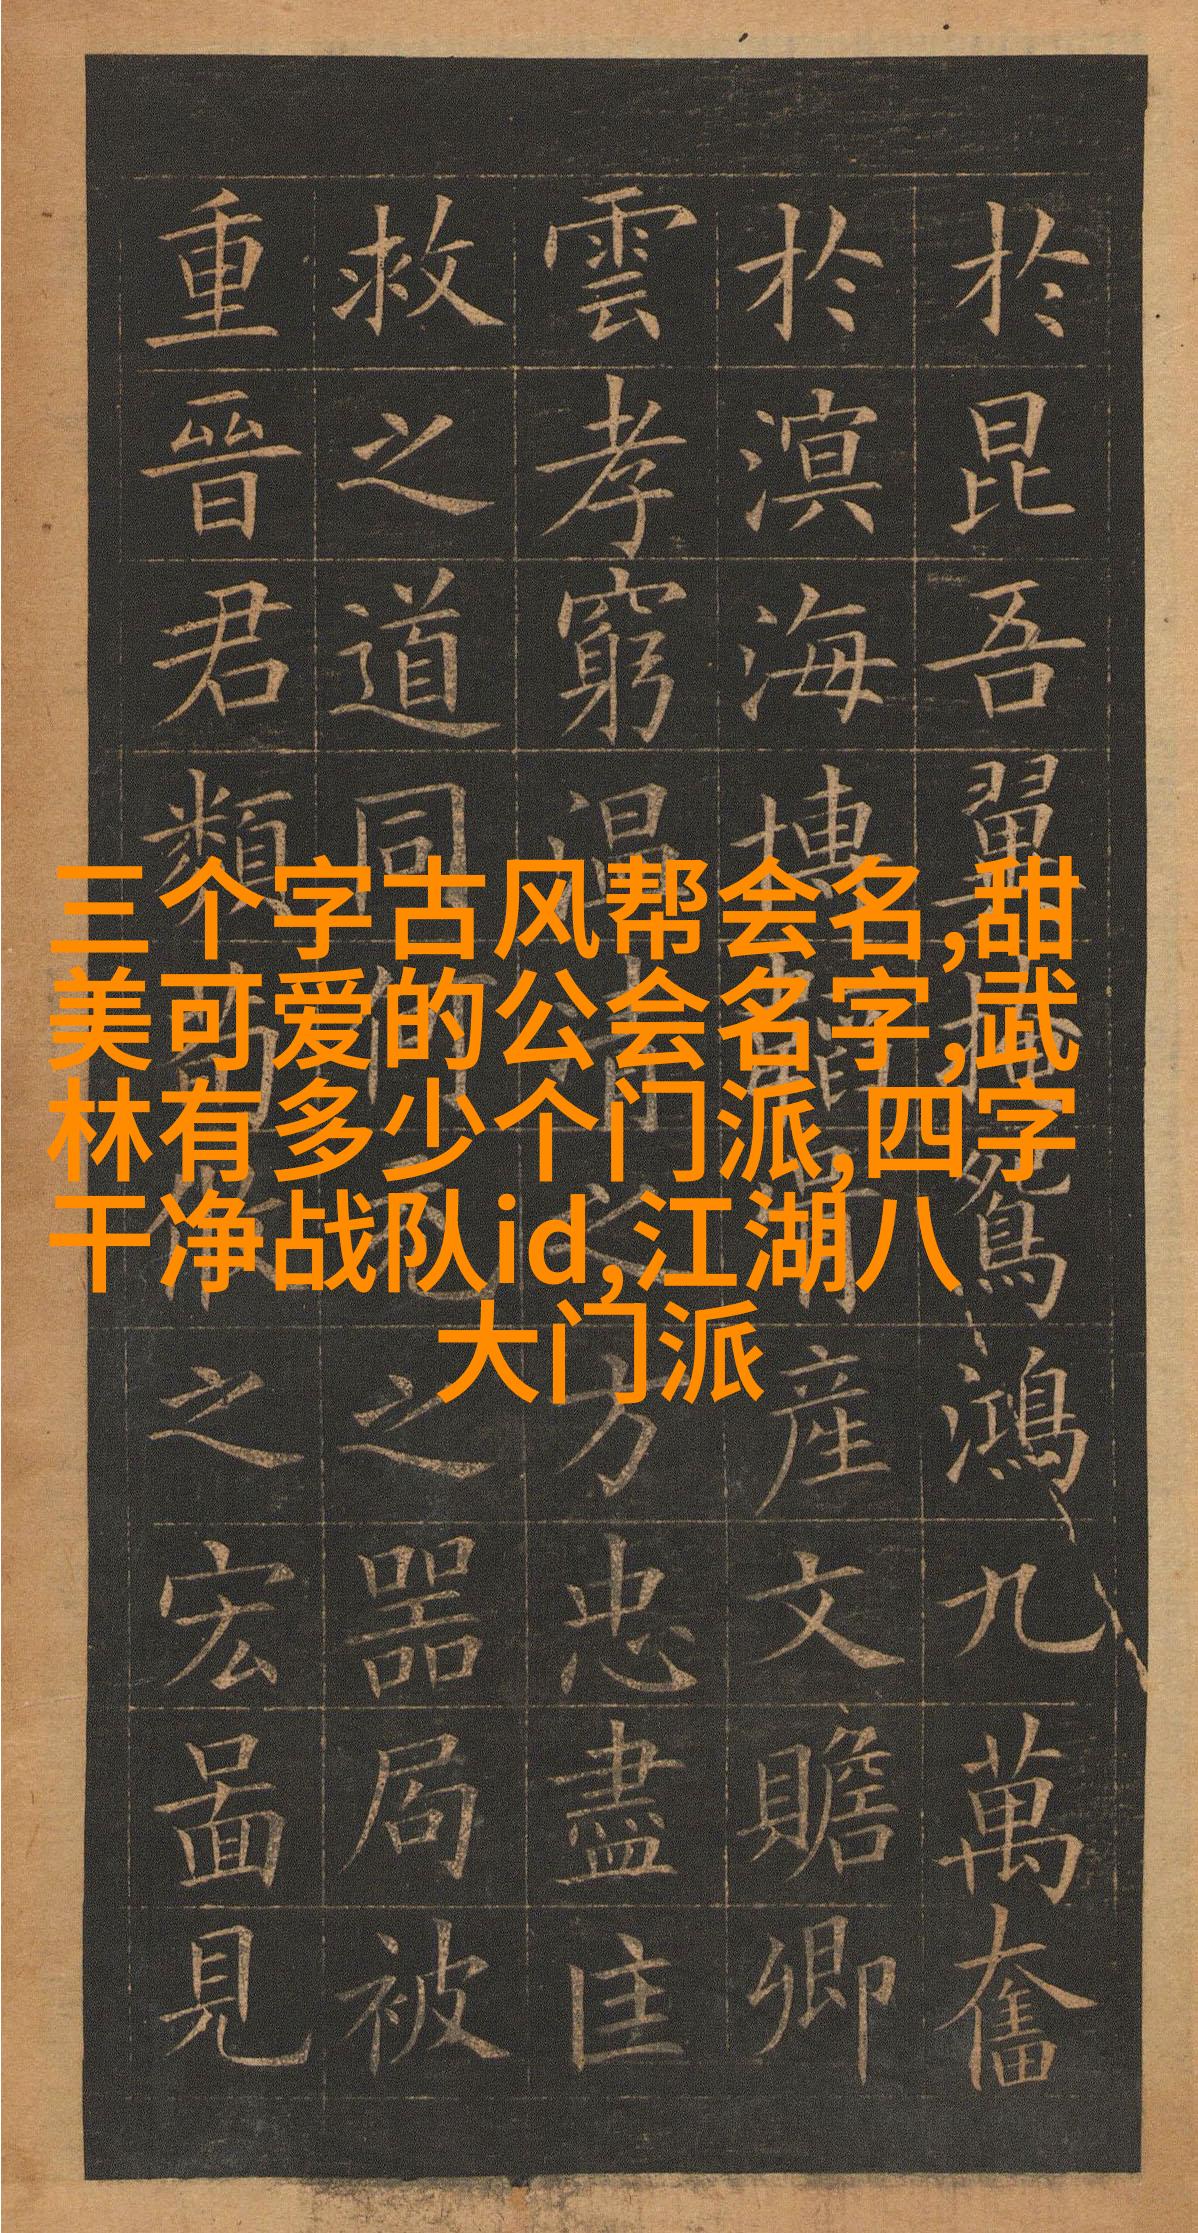 三个字古风帮会名,甜
美可爱的公会名字,武
林有多少个门派,四字
干净战队id,江湖八
大门派
於昆吾翼掩鴛鴻九萬奮
於溟海博韜胥產文贍卿
雲孝窮溫清之方忠盡匡
救之道同何充之器局被
重晉君類荀攸之宏啚見